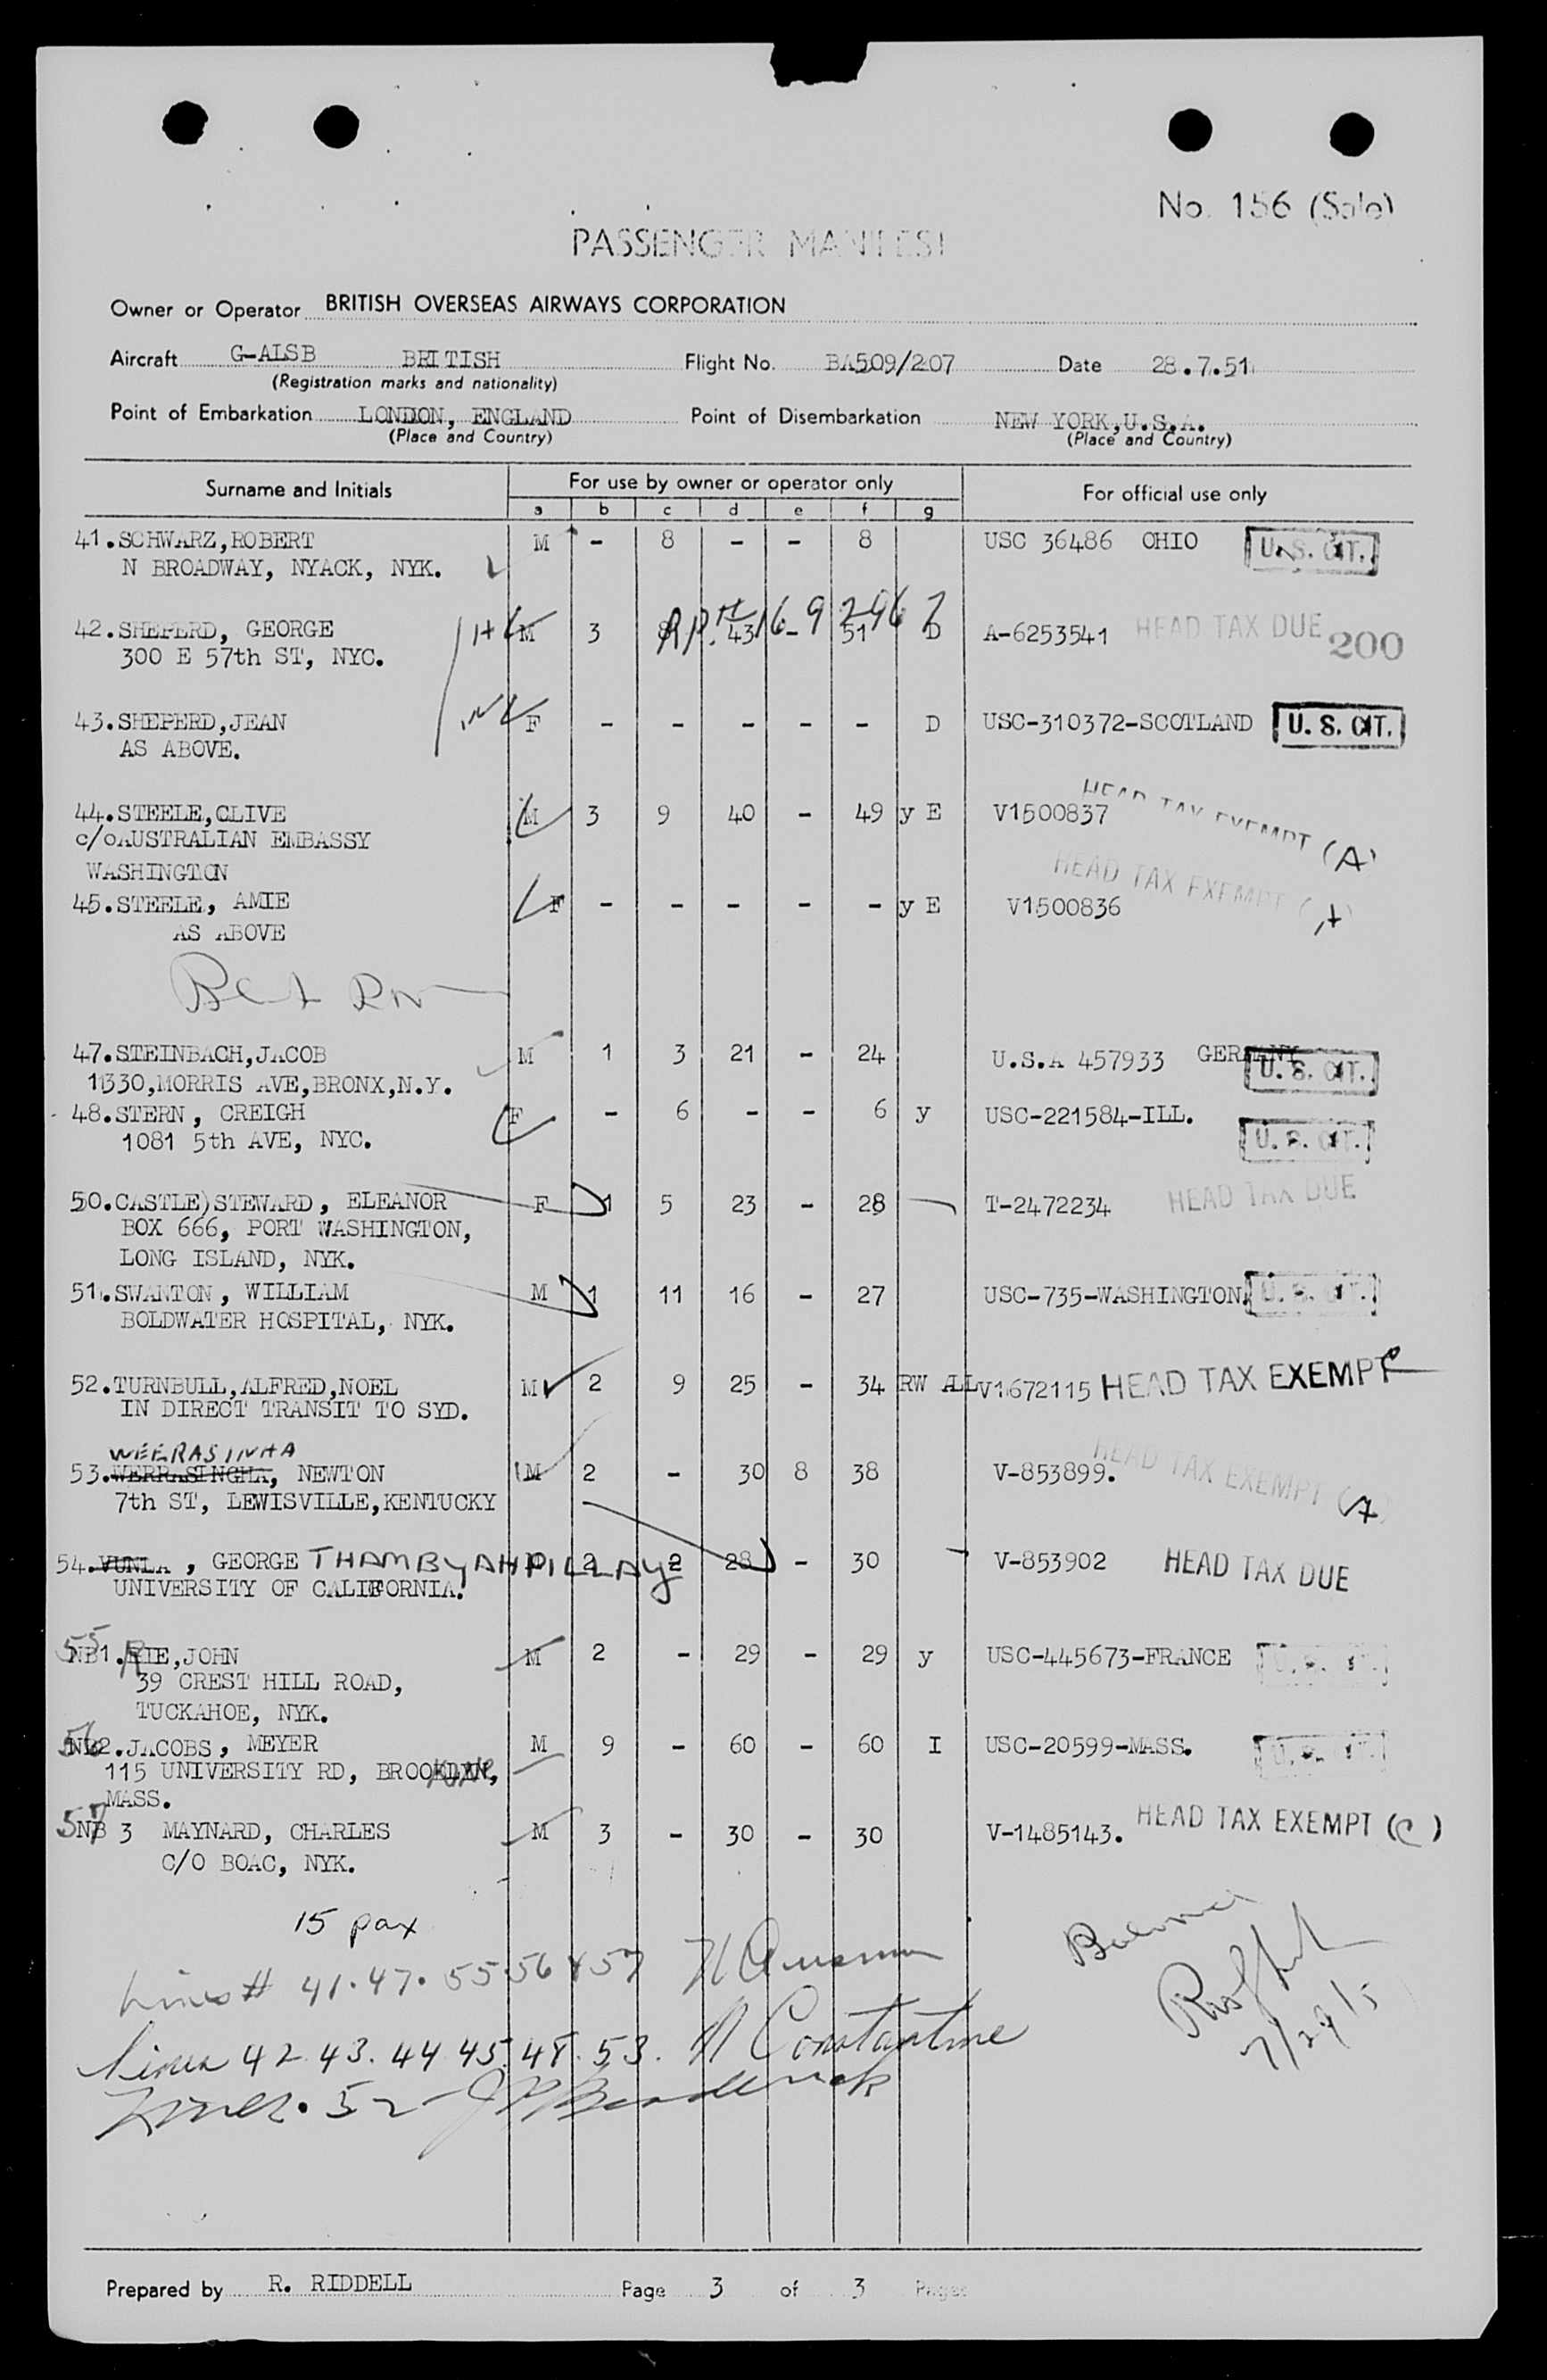 No. 156 (Sale)
PASSENGER MANIFEST
Owner or Operator BRITISH OVERSEAS AIRWAYS CORPORATION
Aircraft G-ALSB BRITISH Flight No. BA509/207 Date 28.7.51
(Registration marks and nationality)
Point of Embarkation LONDON, ENGLAND Point of Disembarkation NEW YORK,U.S.A.
(Place and Country) (Place and Country)
Surname and Initials For use by owner or operator only For official use only
a b c d e f g
41.SCHWARZ,ROBERT M - 8 - - 8 USC 36486 OHIO U.S. CIT.
N BROADWAY, NYACK, NYK.
42.SHEPERD, GEORGE M 3 8 43 - 51 D A-6253541 HEAD TAX DUE 200
300 E 57th ST, NYC.
43.SHEPERD,JEAN F - - - - - D USC-310372-SCOTLAND U.S. CIT.
AS ABOVE.
44.STEELE,CLIVE M 3 9 40 - 49 y E V1500837 HEAD TAX EXEMPT (A)
c/oAUSTRALIAN EMBASSY
WASHINGTON
45.STEELE, AMIE F - - - - - y E V1500836 HEAD TAX EXEMPT (A)
AS ABOVE
47.STEINBACH,JACOB M 1 3 21 - 24 U.S.A 457933 GERMANY U.S. CIT.
11330,MORRIS AVE,BRONX,N.Y.
48.STERN, CREIGH F - 6 - - 6 y USC-221584-ILL. U.S. CIT.
1081 5th AVE, NYC.
50.CASTLE)STEWARD, ELEANOR F 1 5 23 - 28 T-2472234 HEAD TAX DUE
BOX 666, PORT WASHINGTON,
LONG ISLAND, NYK.
51.SWANTON, WILLIAM M 1 11 16 - 27 USC-735-WASHINGTON. U.S. CIT.
BOLDWATER HOSPITAL, NYK.
52.TURNBULL,ALFRED,NOEL M 2 9 25 - 34 RW ALL V1672115 HEAD TAX EXEMPT
IN DIRECT TRANSIT TO SYD.
WEERASINHA
53.WERRASINGHA, NEWTON M 2 - 30 8 38 V-853899. HEAD TAX EXEMPT (A)
7th ST, LEWISVILLE,KENTUCKY
54.VUNLA, GEORGE THAMBYAHPILLAY 2 2 28 - 30 V-853902 HEAD TAX DUE
UNIVERSITY OF CALIFORNIA.
55 NB1.RIE,JOHN M 2 - 29 - 29 y USC-445673-FRANCE U.S. CIT.
39 CREST HILL ROAD,
TUCKAHOE, NYK.
56 NB2.JACOBS, MEYER M 9 - 60 - 60 I USC-20599-MASS. U.S. CIT.
115 UNIVERSITY RD,
MASS.
57 NB 3 MAYNARD, CHARLES M 3 - 30 - 30 V-1485143. HEAD TAX EXEMPT (C)
C/O BOAC, NYK.
15 pax
Lines # 41.47.55.56 & 57
lines 42 43. 44 45. 48. 53. Constantine
Lines. 52
7/29/5
Prepared by R. RIDDELL Page 3 of 3 Pages